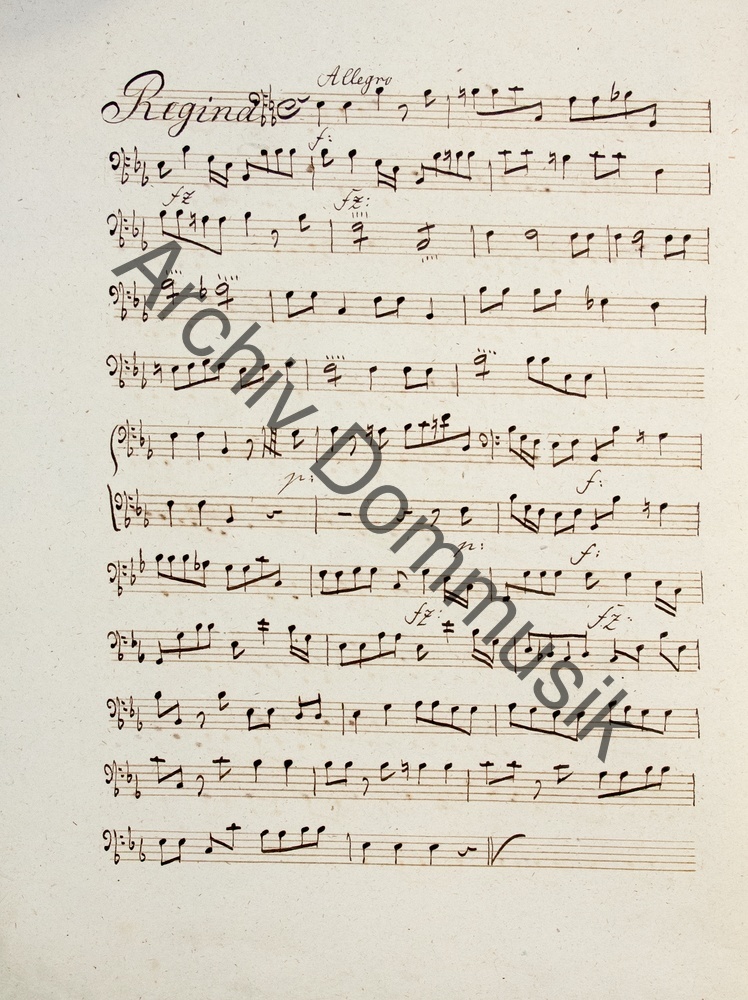 Allegro
Regina
f:
fz fz:
p: f:
p: f:
fz: fz:
Archiv Dommusik